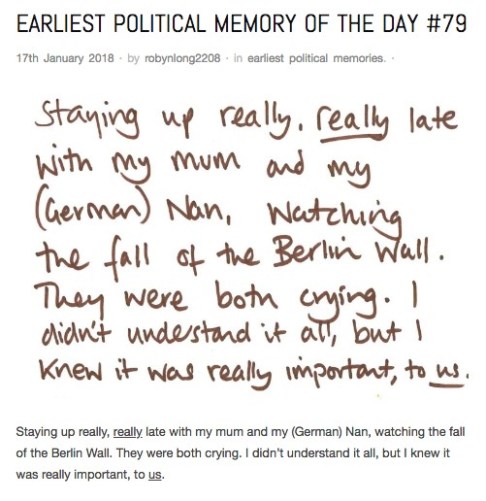 EARLIEST POLITICAL MEMORY OF THE DAY #79
17th January 2018 · by robynlong2208 · in earliest political memories. ·
Staying up really, really late
with my mum and my
(German) Nan, watching
the fall of the Berlin Wall.
They were both crying. I
didn't understand it all, but I
knew it was really important, to us.
Staying up really, really late with my mum and my (German) Nan, watching the fall
of the Berlin Wall. They were both crying. I didn't understand it all, but I knew it
was really important, to us.